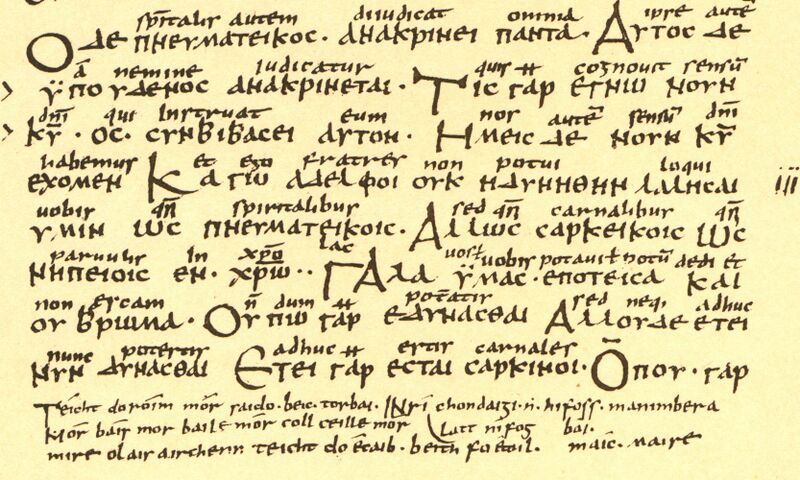 sp̅italis autem diiudicat omnia ipse aute̅
Ο ΔΕ ΠΝΕΥΜΑΤΕΙΚΟΣ · ΑΝΑΚΡΙΝΕΙ ΠΑΝΤΑ · ΑΥΤΟΣ ΔΕ
a̅ nemine iudicatur quis ǂ cognovit sensu̅
ΫΠΟΥΔΕΝΟΣ ΑΝΑΚΡΙΝΕΤΑΙ · ΤΙΣ ΓΑΡ ΕΓΝΩ ΝΟΥΝ
dn̅i qui instruat eum nos aute̅ sensu̅ dn̅i
ΚΥ̅ · ΟΣ · ΣΥΝΒΙΒΑΣΕΙ ΑΥΤΟΝ · ΗΜΕΙΣ ΔΕ ΝΟΥΝ ΚΥ̅
habemus et ego fratres non potui loqui
ΕΧΟΜΕΝ ΚΑΓΩ ΑΔΕΛΦΟΙ ΟΥΚ ΗΔΥΝΗΘΗΝ ΛΑΛΗΣΑΙ iii
vobis qn̅ spiritalibus sed qn̅ carnalibus qn̅
ΥΜΙΝ ΩΣ ΠΝΕΥΜΑΤΕΙΚΟΙΣ · ΑΛΛΩΣ ΣΑΡΚΕΙΚΟΙΣ ΩΣ
parvulis in xp̅o lac vos ł vobis potavi ł potu̅ dedi et
ΝΗΠΕΙΟΙΣ ΕΝ · ΧΡΩ̅ ·· ΓΑΛΑ ΫΜΑΣ · ΕΠΟΤΕΙΣΑ ΚΑΙ
non escam n̅ dum ǂ poteratis sed neqi adhuc
ΟΥ ΒΡΩΜΑ · ΟΥΠΩ ΓΑΡ ΕΔΥΝΑΣΘΑΙ ΑΛΛΟΥΔΕ ΕΤΕΙ
nunc potestis adhuc ǂ estis carnales
ΝΥΝ ΔΥΝΑΣΘΑΙ ΕΤΕΙ ΓΑΡ ΕΣΤΑΙ ΣΑΡΚΙΝΟΙ · ΟΠΟΥ · ΓΑΡ
Teicht doróim mór saido · beic · torbai · INrí chondaigi · n̄ · hifoss · manimbera
latt ni fog bai ·
Mór báis mór baile mór coll ceille mór
mire olais airchenn teicht do écaib · beith fo étoil · maic · maire